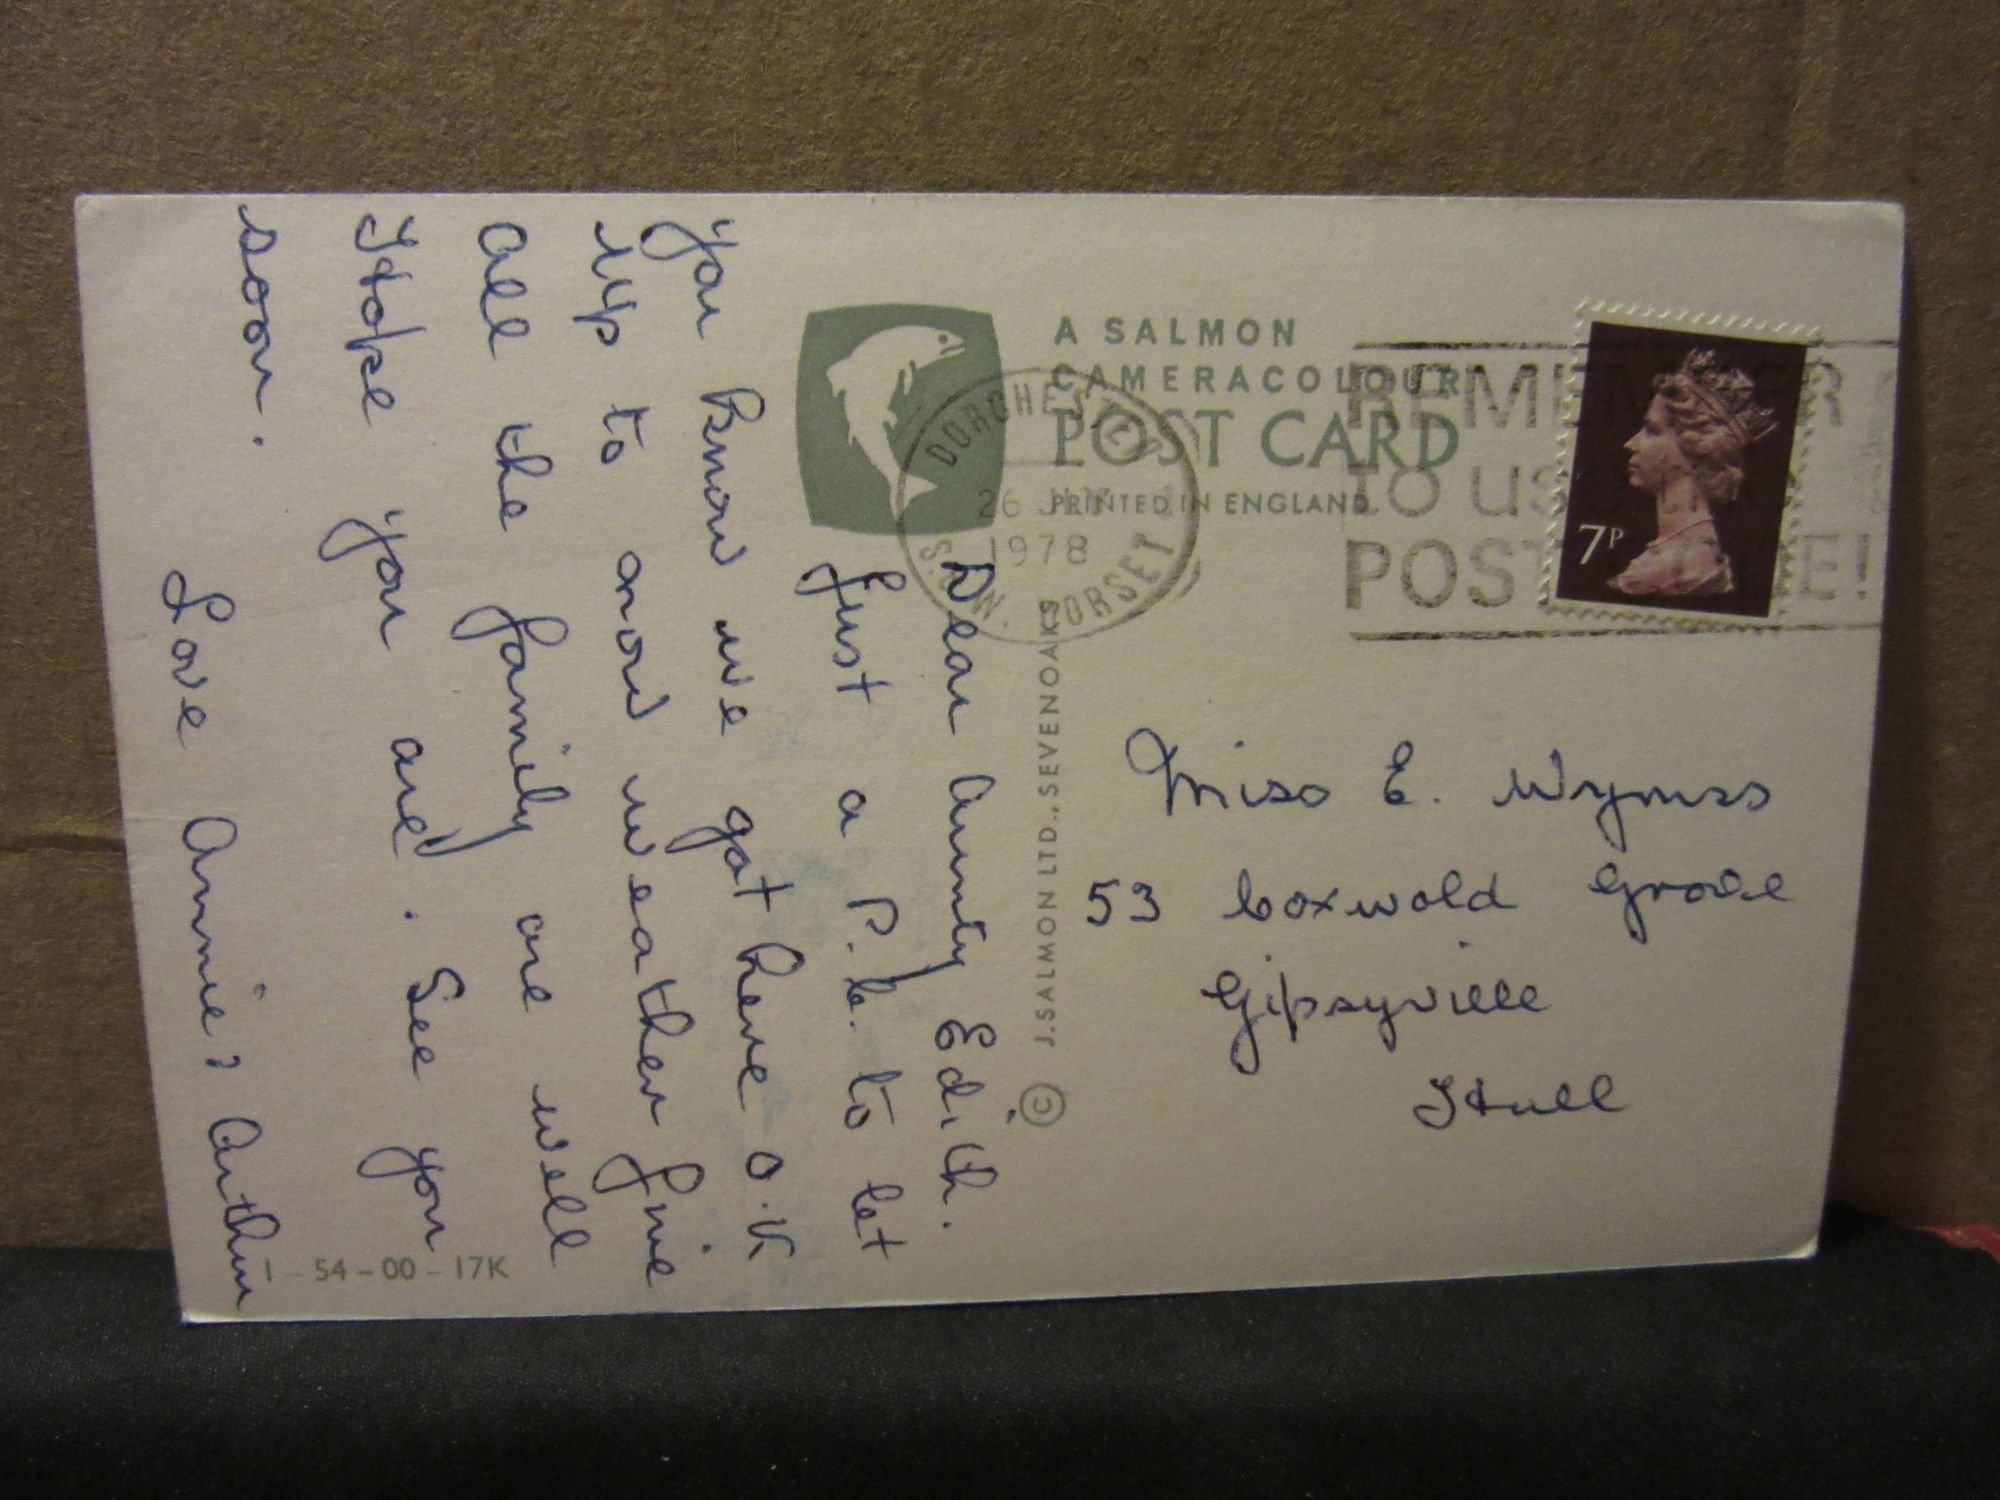 Dear Aunty Edith.
Just a P.C. to let
you know we got here O.K
up to now weather fine
all the family are well
Hope you are. See you
soon.
Love Annie & Arthur
A SALMON
CAMERACOLOUR
POST CARD
PRINTED IN ENGLAND
DORCHESTER
26
1978
DORSET
REMEMBER
TO USE
POSTCODE!
7P
© J. SALMON LTD., SEVENOAKS
Miss E.
53 Coxwold Grove
Gipsyville
Hull
1 - 54 - 00 - 17K